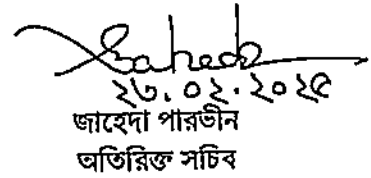 Zaheda
২৩.০২.২০২৫
জাহেদা পারভীন
অতিরিক্ত সচিব